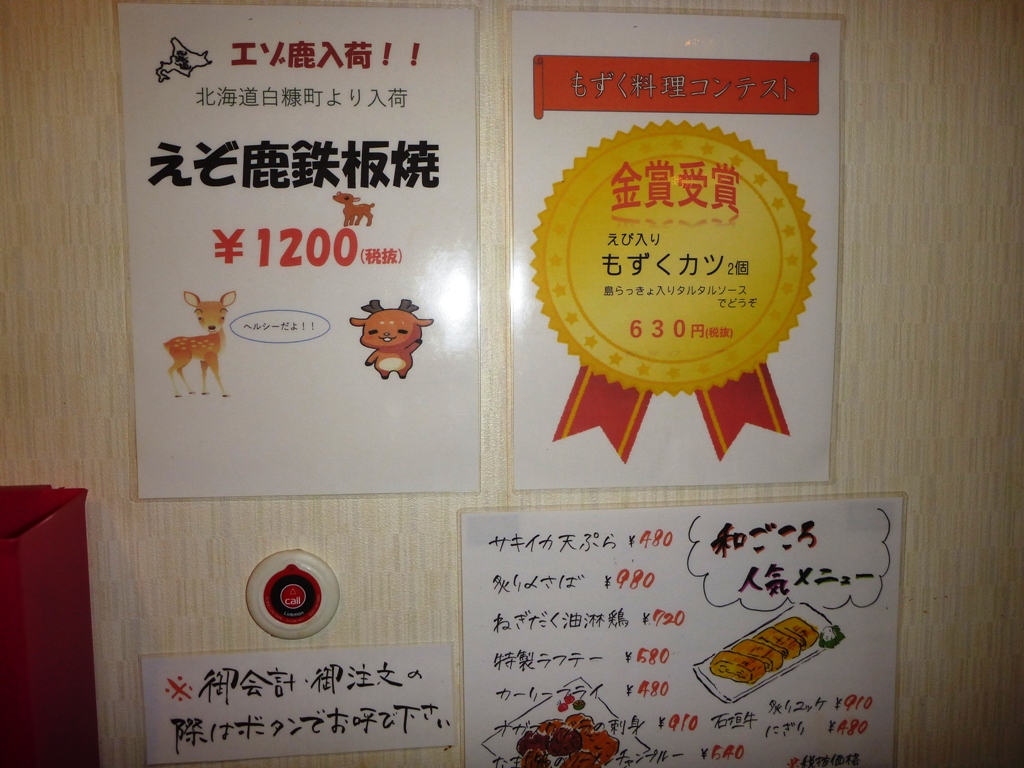 エゾ鹿入荷！！
北海道白糠町より入荷
えぞ鹿鉄板焼
¥1200(税抜)
ヘルシーだよ！！
もずく料理コンテスト
金賞受賞
えび入り
もずくカツ2個
島らっきょ入りタルタルソース
でどうぞ
６３０円(税抜)
call
※御会計・御注文の
際はボタンでお呼び下さい
和ごころ
人気メニュー
サキイカ天ぷら ¥480
炙り〆さば ¥980
ねぎだく油淋鶏 ¥720
特製ラフテー ¥580
カーリーフライ ¥480
の刺身 ¥910
チャンプルー ¥540
石垣牛
炙りユッケ ¥910
にぎり ¥480
※税抜価格